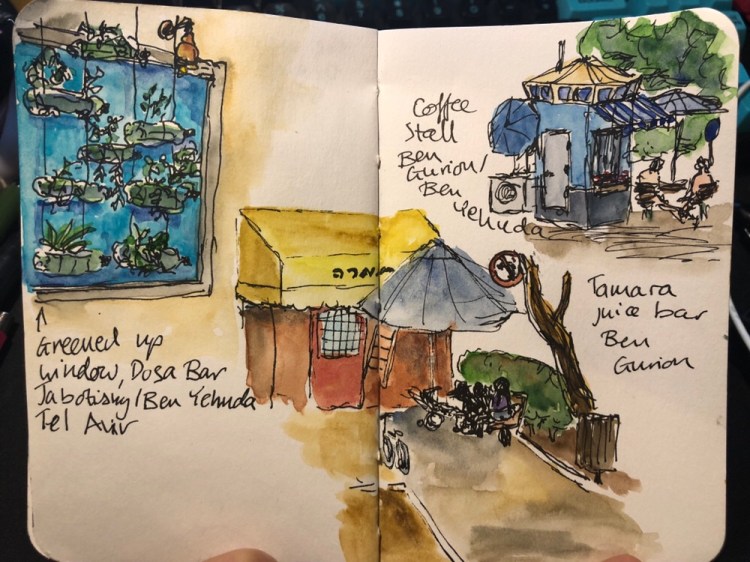 Coffee
Stall
Ben
Gurion/
Ben
Yehuda
תמרה
Tamara
juice bar
Ben
Gurion
↑
Greened up
window, Dosa Bar
Jabotisny/Ben Yehuda
Tel Aviv